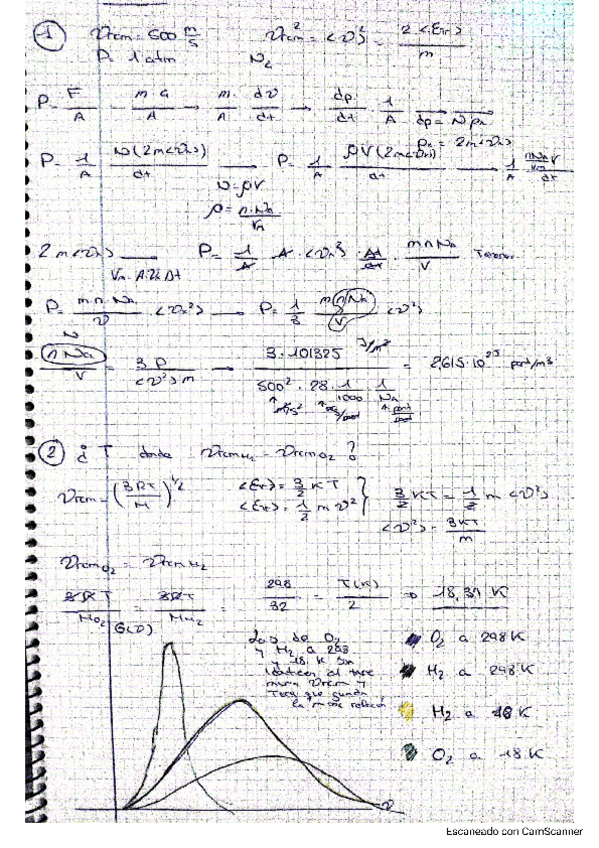 1 Vrcm = 500 m/s Vrcm² = <v²> = 2<Etr>/m
P = 1 atm
P = F/A = m·a/A → m/A · dv/dt → dp/dt · 1/A
P = 1/A N(2m<vx>)/dt → P = 1/A ρV(2m<vx>)/dt →
N = ρV
ρ = n·Na/Vm
Vm = A·vx Δt
P = m n Na/V <vx²> → P = 1/3 m n Na/V <v²>
n Na/V = 3P/<v²>m → 3·101325 / 500²·28·1/1000·1/Na = 2,615·10²⁵ part/m³
2 ¿T donde VrcmH2 = VrcmO2?
Vrcm = (3RT/M)^1/2 <Etr> = 3/2 KT
<Etr> = 1/2 m v² } 3/2 KT = 1/2 m <v²>
<v²> = 3KT/m
VrcmO2 = VrcmH2
3RT/MO2 = 3RT/MH2 = 298/32 = T(K)/2 ⇒ 18,31 K
G(v)
Las de O2
y H2 a 298
y 18 K son
idénticas al tener
misma Vrcm y
la misma relación
O2 a 298 K
H2 a 298 K
H2 a 18 K
O2 a 18 K
v
Escaneado con CamScanner